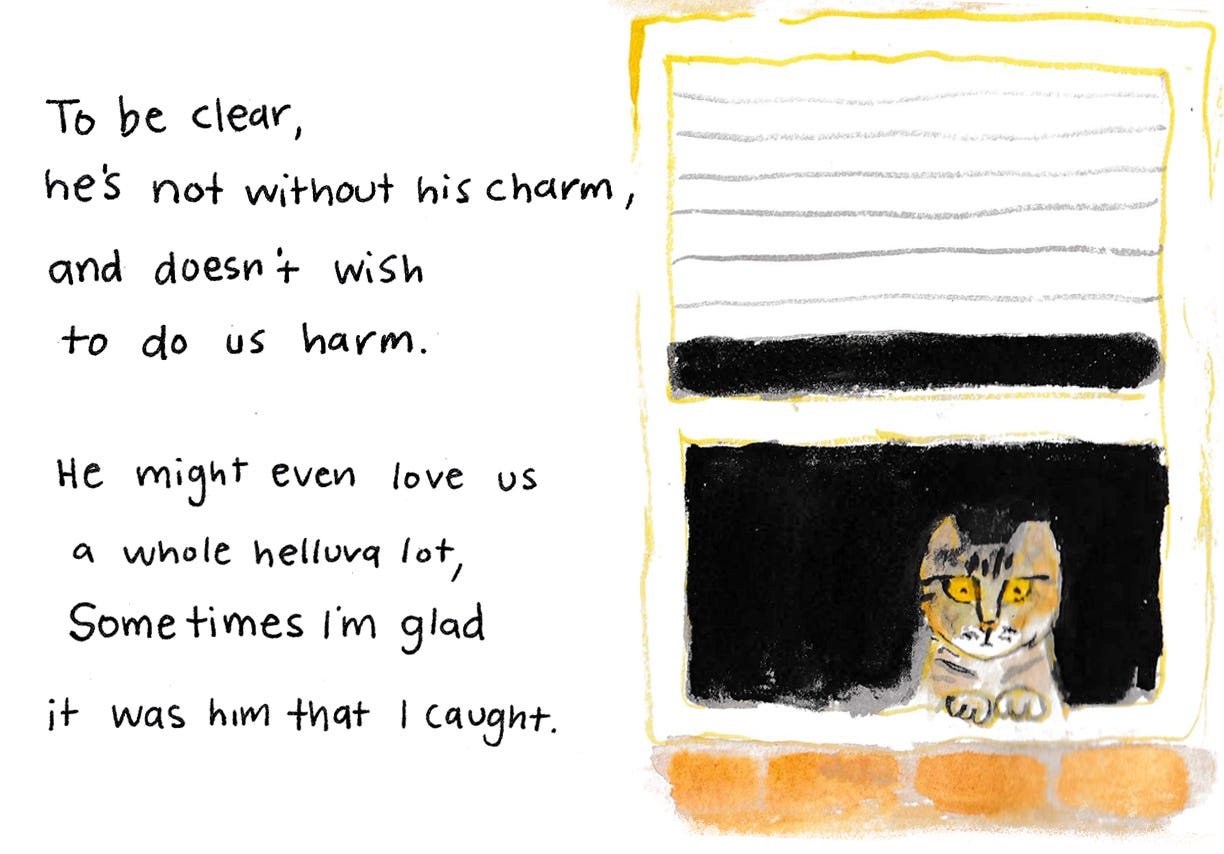 To be clear,
he's not without his charm,
and doesn't wish
to do us harm.
He might even love us
a whole helluva lot,
Sometimes I'm glad
it was him that I caught.